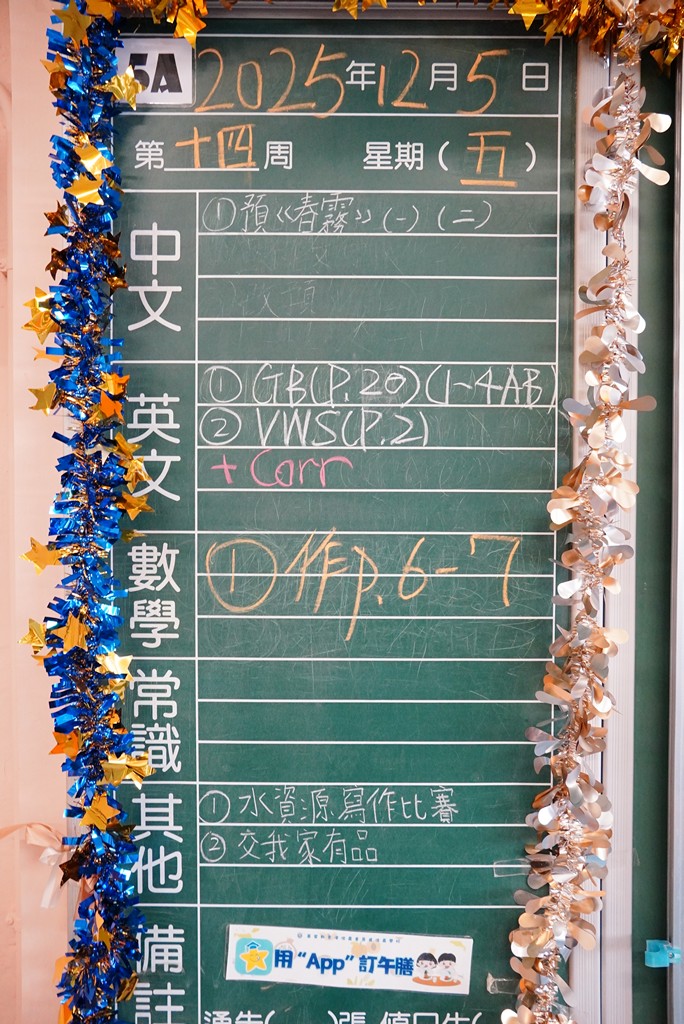 5A 2025年12月5日
第十四周 星期(五)
中文
①預《春霧》(一)(二)
英文
①GB(P.20)(1~4AB)
②VWS(P.2)
+Corr
數學
①作p.6-7
常識
其他
①水資源寫作比賽
②交我家有品
備註
用“App”訂午膳